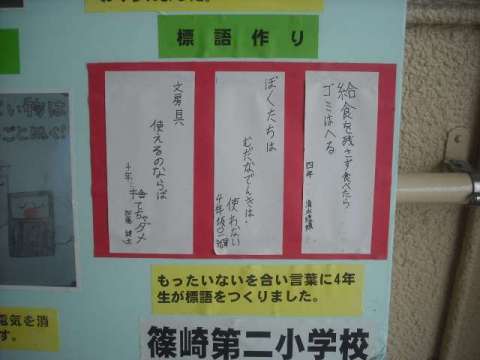 標語作り
給食を残さず食べたら
ゴミはへる
四年
ぼくたちは
むだなでんきは
使わない
4年
文房具
使えるのならば
捨てちゃダメ
4年
もったいないを合い言葉に4年
生が標語をつくりました。
篠崎第二小学校
電気を消
す。